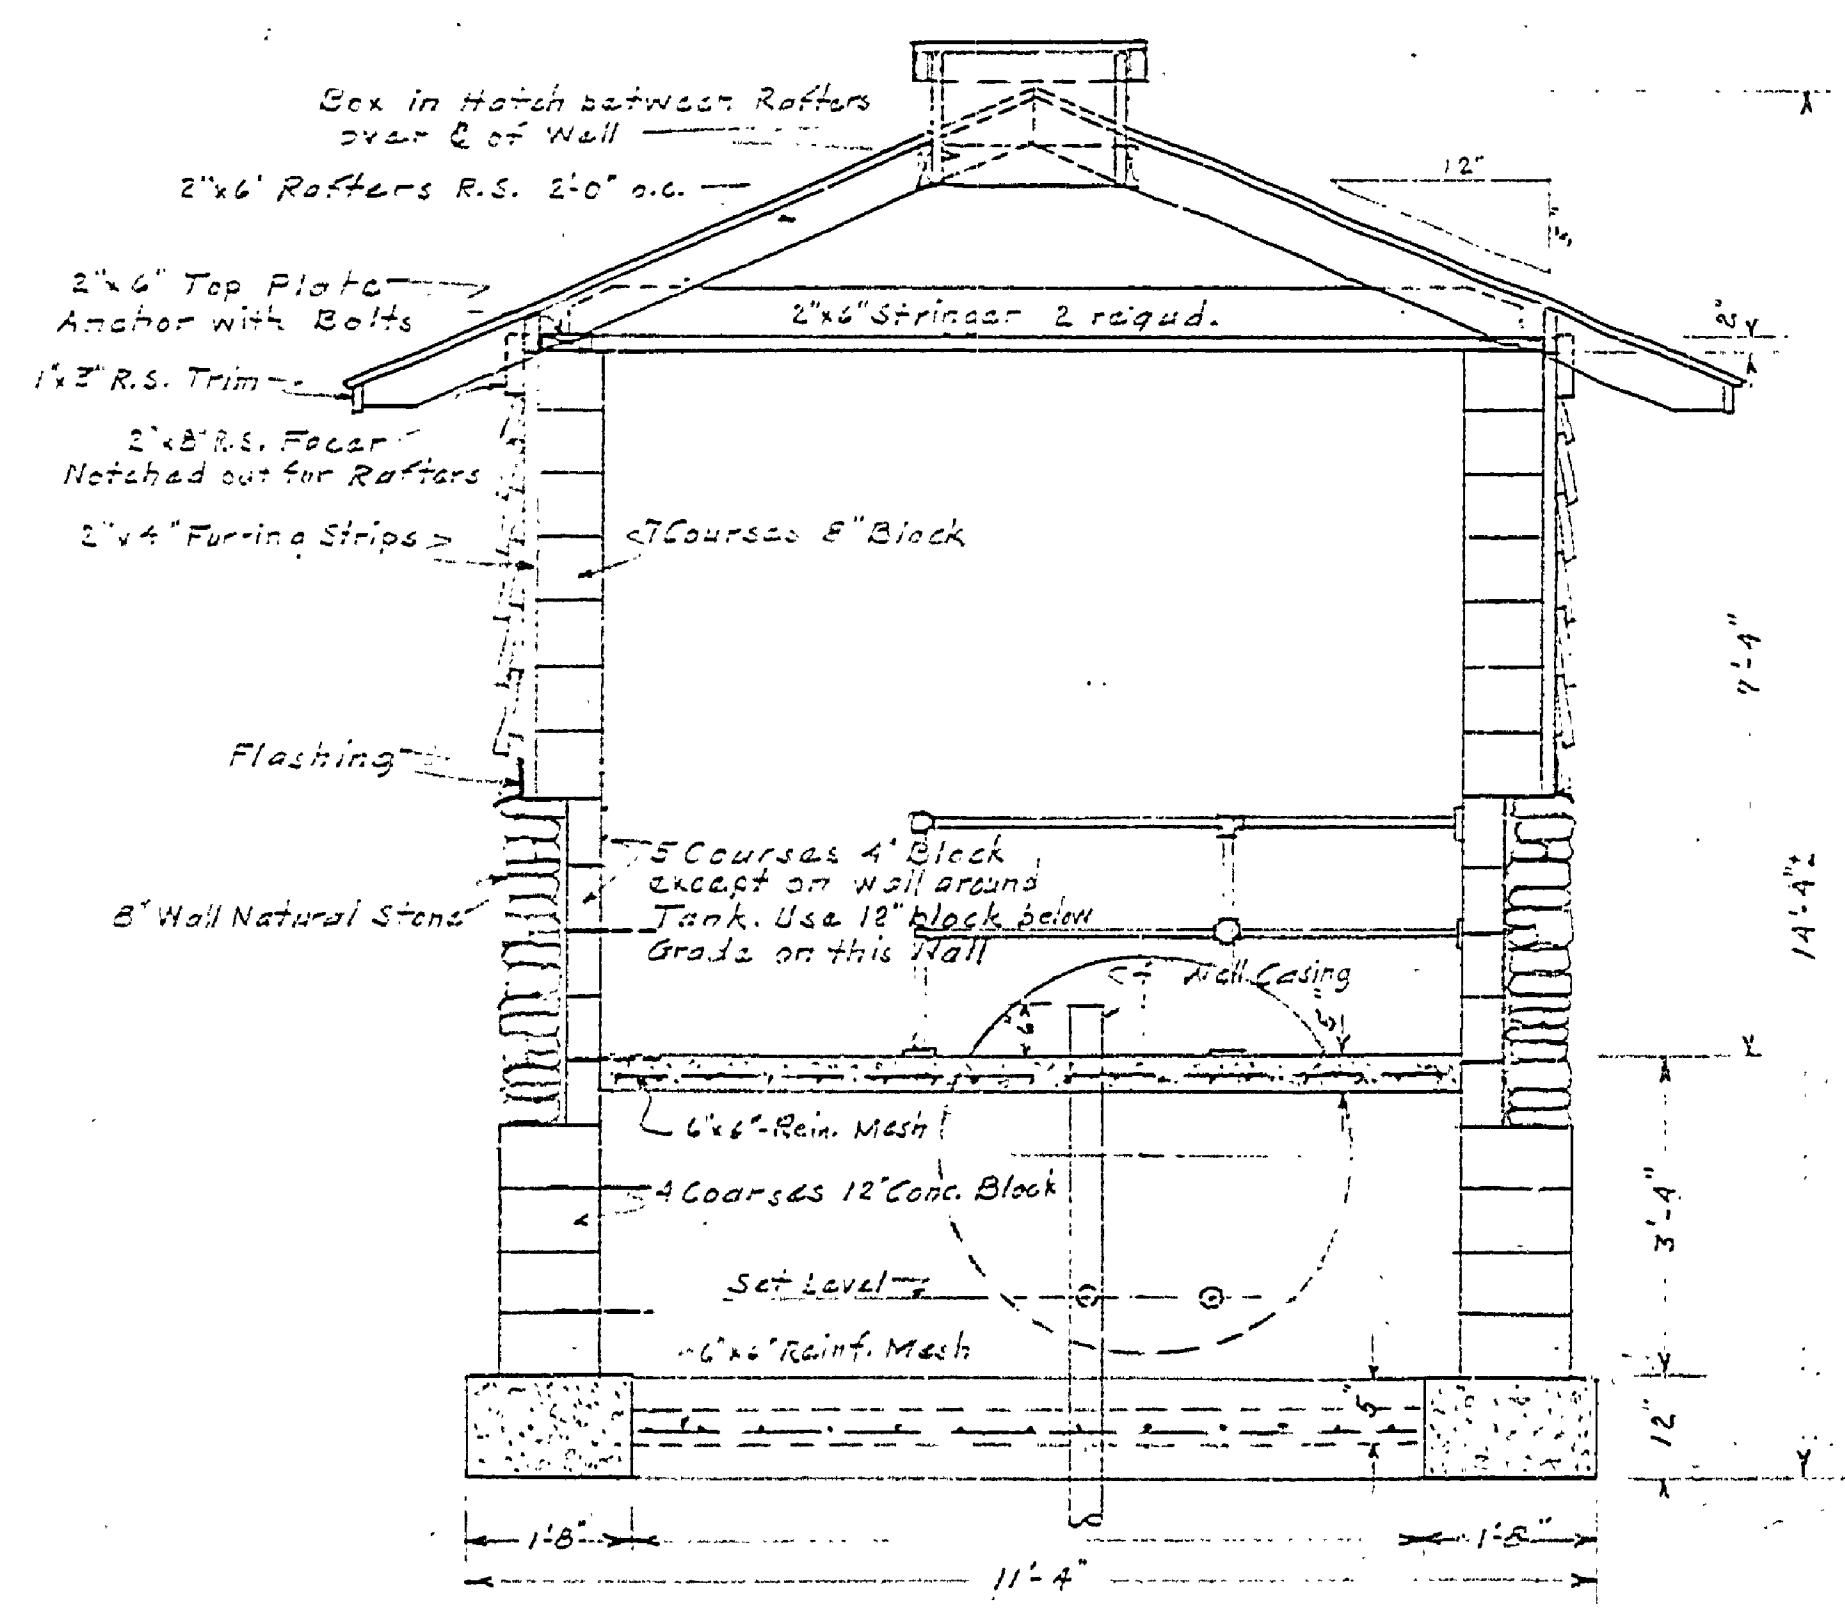 Box in Hatch between Rafters
over ℄ of Wall
2"x6" Rafters R.S. 2'-0" o.c.
12"
2"x6" Top Plate
Anchor with Bolts
2"x6" Stringer 2 reiqud.
2"
1"x3" R.S. Trim
2"x8" R.S. Facer
Notched out for Rafters
2"x4" Furring Strips
7 Courses 8" Block
7'-4"
Flashing
5 Courses 4" Block
except on wall around
Tank. Use 12" block below
Grade on this Wall
8" Wall Natural Stone
14'-4"±
Well Casing
6"
5"
6"x6"-Rein. Mesh
4 Coarses 12" Conc. Block
3'-4"
Set Level
6"x6" Reinf. Mesh
5"
12"
1'-8"
1'-8"
11'-4"